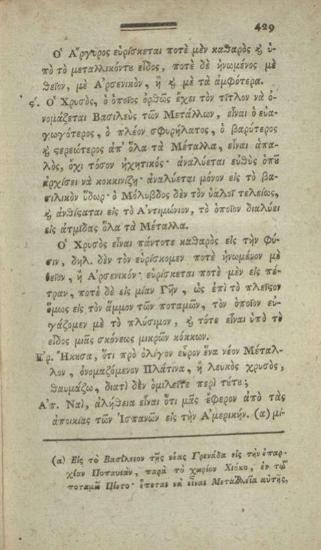 429
Ὁ Ἄργυρος εὑρίσκεται ποτὲ μὲν καθαρὸς ὑ-
πὸ τὸ μεταλλικόντυ εἶδος, ποτὲ δὲ ἡνωμένος μὲ
θεῖον, μὲ Ἀρσενικὸν, ἢ καὶ μὲ τὰ ἀμφότερα.
Ὁ Χρυσὸς, ὁ ὁποῖος ὀρθῶς ἔχει τὸν τίτλον νὰ ὀ-
νομάζεται Βασιλεὺς τῶν Μετάλλων, εἶναι ὁ εὐα-
γωγότερος, ὁ πλέον σφυρήλατος, ὁ βαρύτερος
καὶ στερεώτερος ἀπ' ὅλα τὰ Μέταλλα, εἶναι ἁπα-
λὸς, ὄχι τόσον ἠχητικός· ἀναλύεται εὐθὺς ὁπῦ
ἀρχίσει νὰ κοκκινίζῃ· ἀναλύεται μόνον εἰς τὸ βα-
σιλικὸν ὕδωρ· ὁ Μόλυβδος δὲν τὸν ὑαλοῖ τελείως,
καὶ ἀνθίσαται εἰς τὸ Ἀντιμώνιον, τὸ ὁποῖον διαλύει
εἰς ἀτμίδας ὅλα τὰ Μέταλλα.
Ὁ Χρυσὸς εἶναι πάντοτε καθαρὸς εἰς τὴν Φύ-
σιν, δηλ. δὲν τὸν εὑρίσκομεν ποτὲ ἡνωμένον μὲ
θεῖον, ἢ Ἀρσενικόν· εὑρίσκεται ποτὲ μὲν εἰς πέ-
τραν, ποτὲ δὲ εἰς μίαν Γῆν, ὡς ἐπὶ τὸ πλεῖςον
ὅμως εἰς τὸν ἄμμον τῶν ποταμῶν, τὸν ὁποῖον εὐ-
γάζομεν μὲ τὸ πλύσιμον, καὶ τότε εἶναι ὑπὸ τὸ
εἶδος μιᾶς σκόνεως μικρῶν κόκκων.
Ἐρ. Ἤκησα, ὅτι πρὸ ὀλίγον εὗρον ἕνα νέον Μέταλ-
λον, ὀνομαζόμενον Πλάτινα, ἢ λευκὸς χρυσὸς,
θαυμάζω, διατὶ δὲν ὁμιλεῖτε περὶ τύτυ;
Ἀπ. Ναὶ, ἀλήθεια εἶναι ὅτι μᾶς ἔφερον ἀπὸ τὰς
ἀποικίας τῶν Ἱσπανῶν εἰς τὴν Ἀμερικήν. (α) μί-
(α) Εἰς τὸ Βασίλειον τῆς νέας Γρενάδα εἰς τὴν ἐπαρ-
χίαν Ποπαυὰν, παρὰ τὸ χωρίον Χιόκο, ἐν τῷ
ποταμῷ Πίντο· ἕπεται νὰ εἶναι Μεταλλεῖα αὐτῆς,